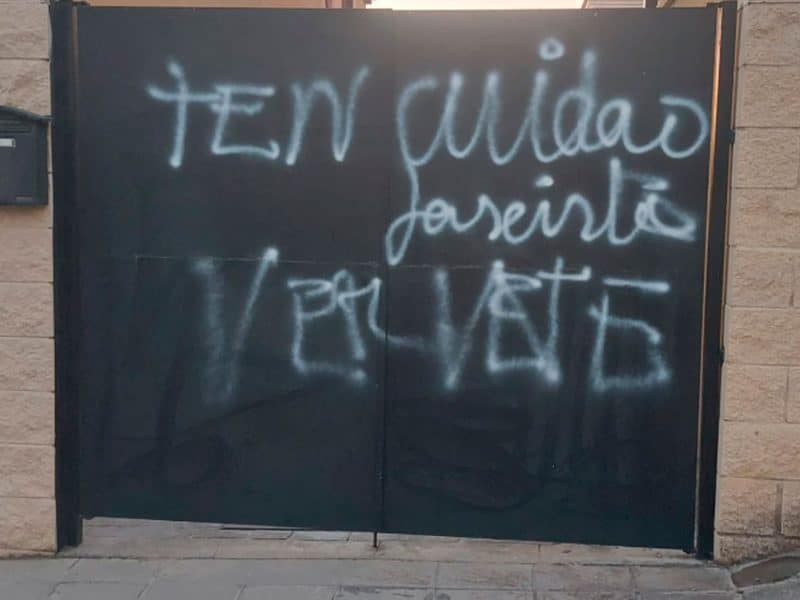 tEN cuidao
fascista
VER VEtE